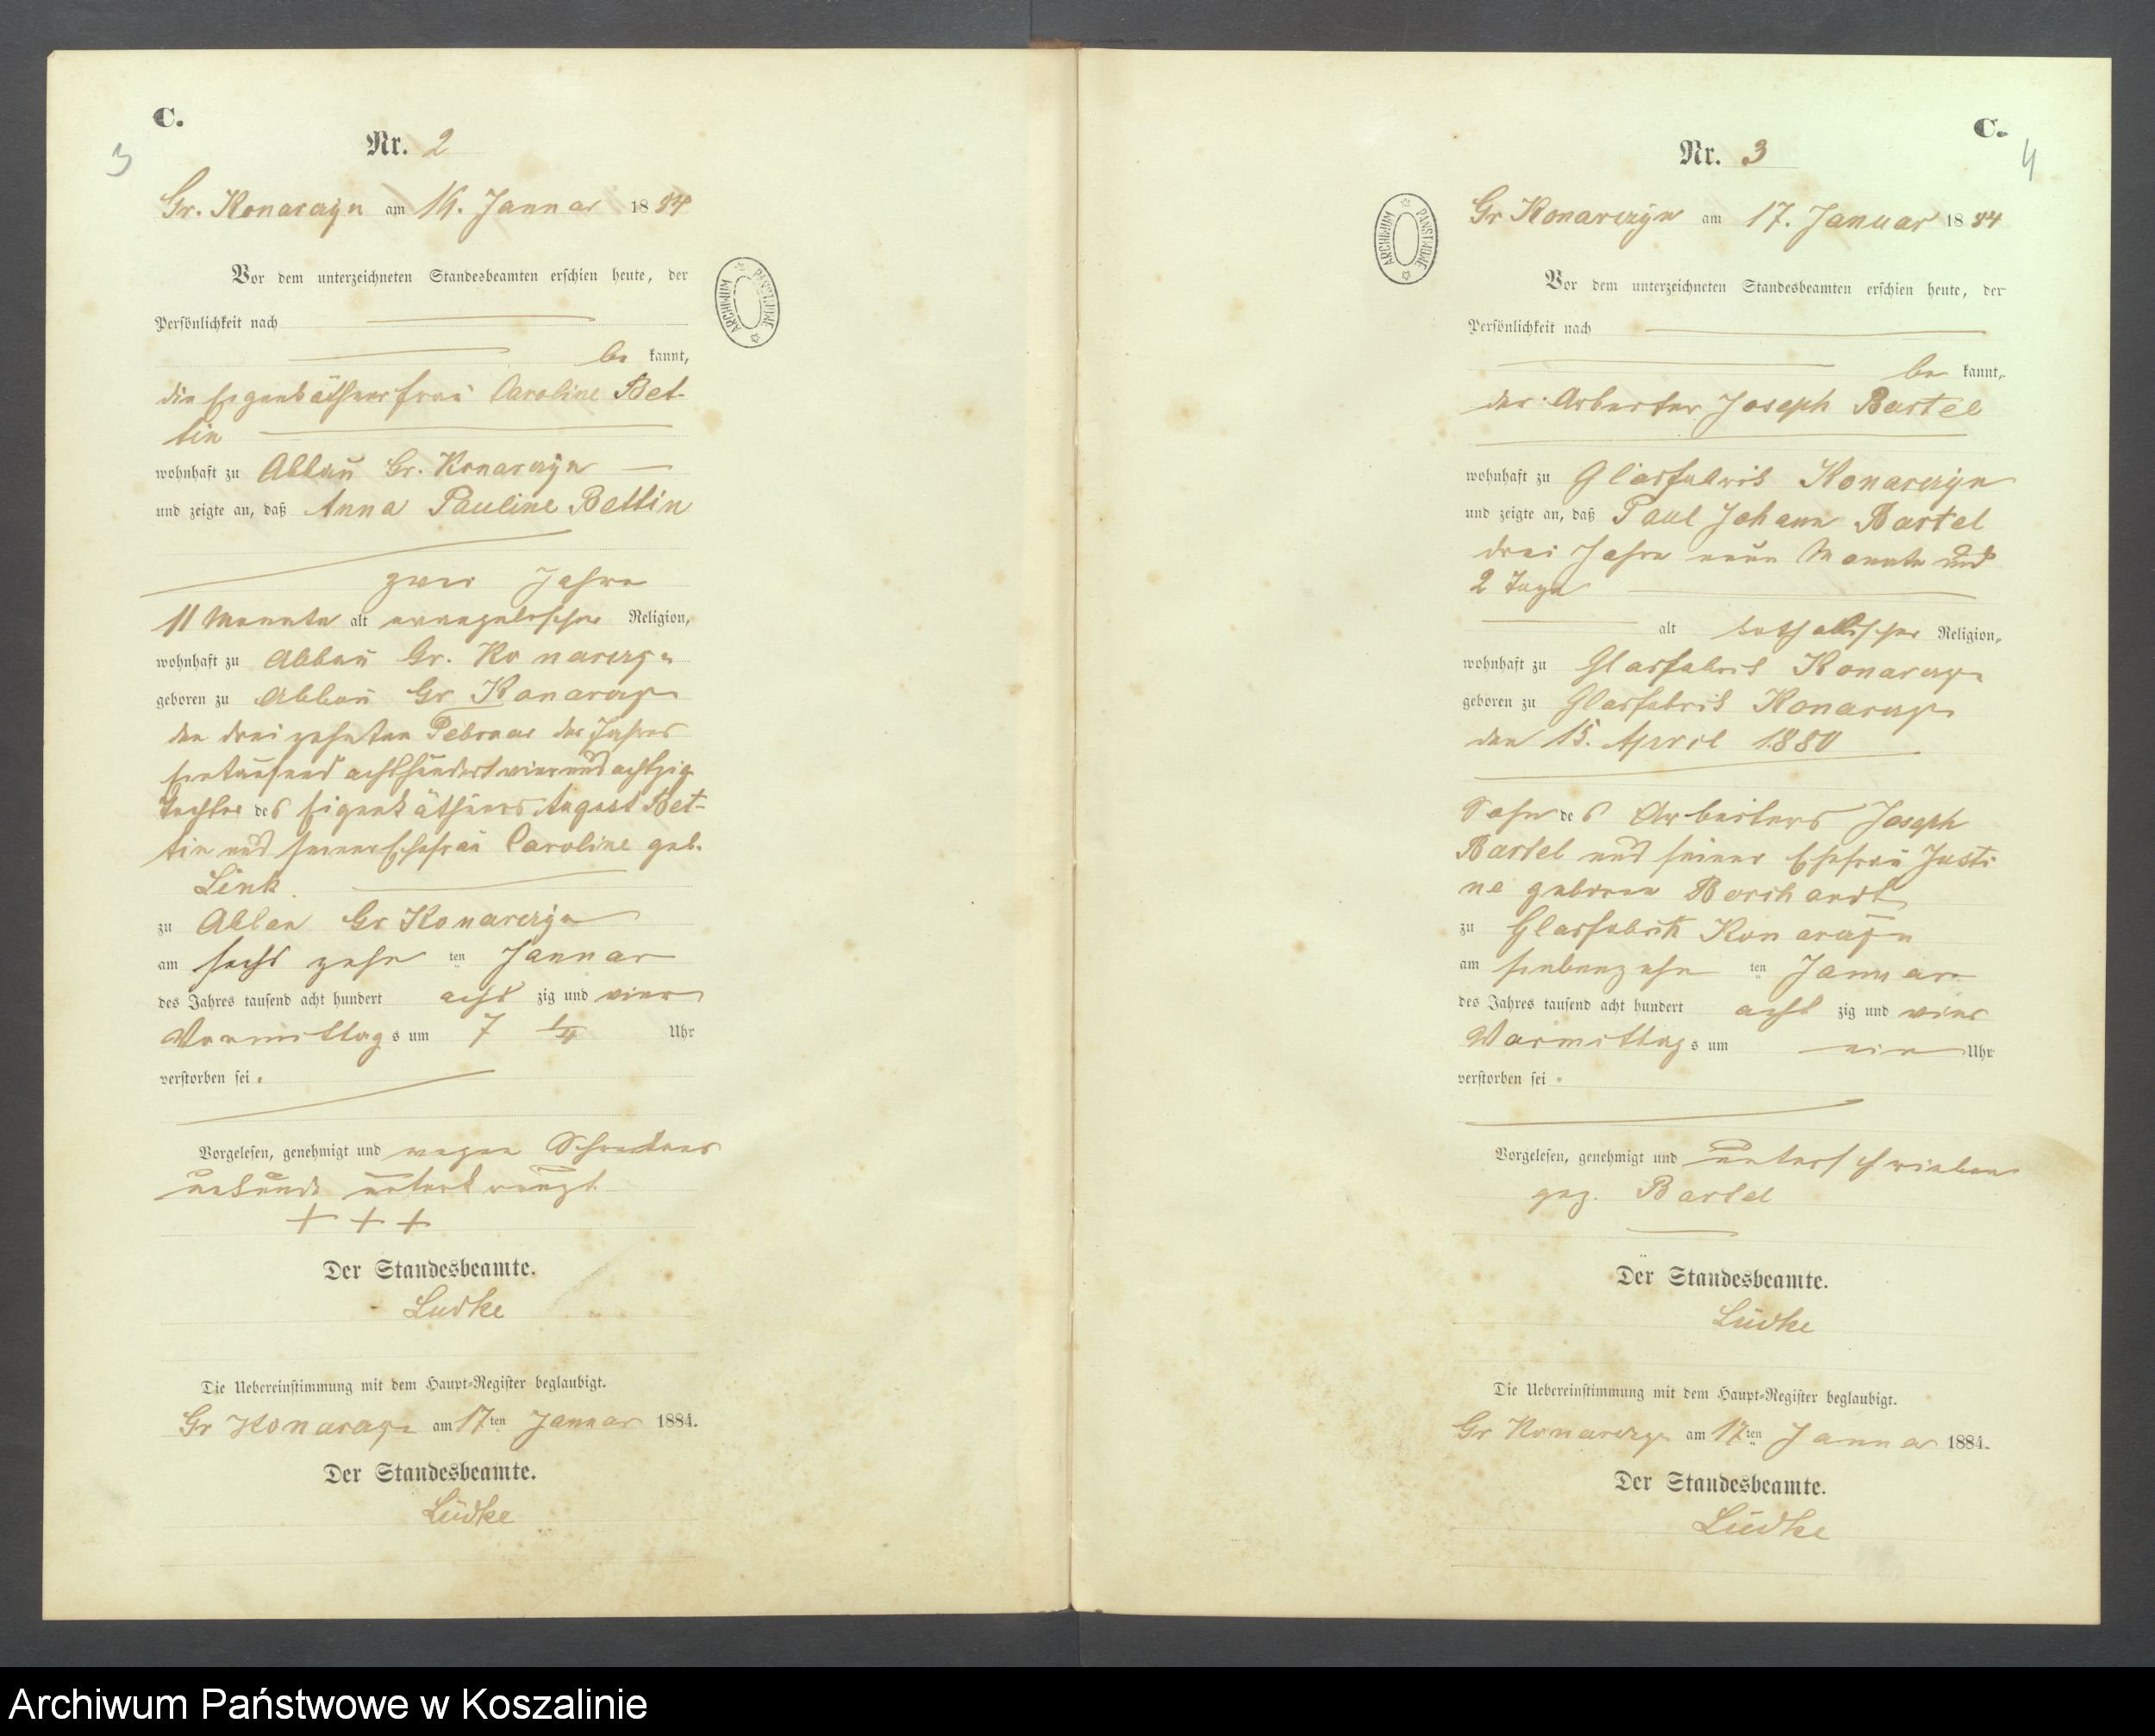 C.
3
Nr. 2
Gr. Konarczyn am 16. Januar 1884
Vor dem unterzeichneten Standesbeamten erschien heute, der
Persönlichkeit nach
be kannt,
die Eigenkäthnerfrau Caroline Bet-
tin
wohnhaft zu Abbau Gr. Konarczyn
und zeigte an, daß Anna Pauline Bettin
zwei Jahre
11 Monate alt evangelischer Religion,
wohnhaft zu Abbau Gr. Konarczyn
geboren zu Abbau Gr Konarczyn
den dreizehnten Februar des Jahres
eintausend achthundert vierundachtzig
Tochter des Eigenkäthners August Bet-
tin und seiner Ehefrau Caroline geb.
Link
zu Abbau Gr Konarczyn
am sechszehn ten Januar
des Jahres tausend acht hundert acht zig und vier
Vormittags um 7 1/4 Uhr
verstorben sei.
Vorgelesen, genehmigt und wegen Schreibens
unkunde unterkreuzt
+ + +
Der Standesbeamte.
Ludke
Die Uebereinstimmung mit dem Haupt-Register beglaubigt.
Gr Konarczyn am 17ten Januar 1884.
Der Standesbeamte.
Lüdke
ARCHIWUM PAŃSTWOWE
C.
4
Nr. 3
Gr Konarczyn am 17. Januar 1884
Vor dem unterzeichneten Standesbeamten erschien heute, der
Persönlichkeit nach
be kannt,
der Arbeiter Joseph Bartel
wohnhaft zu Glasfabrik Konarczyn
und zeigte an, daß Paul Johann Bartel
drei Jahre neun Monate und
2 Tage
alt katholischer Religion,
wohnhaft zu Glasfabrik Konarczyn
geboren zu Glasfabrik Konarczyn
den 15. April 1880
Sohn des Arbeiters Joseph
Bartel und seiner Ehefrau Justi
ne geboren Borchardt
zu Glasfabrik Konarczyn
am siebenzehn ten Januar
des Jahres tausend acht hundert acht zig und vier
Vormittags um ein Uhr
verstorben sei.
Vorgelesen, genehmigt und unterschrieben
gez. Bartel
Der Standesbeamte.
Lüdke
Die Uebereinstimmung mit dem Haupt-Register beglaubigt.
Gr Konarczyn am 17ten Januar 1884.
Der Standesbeamte.
Lüdke
ARCHIWUM PAŃSTWOWE
Archiwum Państwowe w Koszalinie